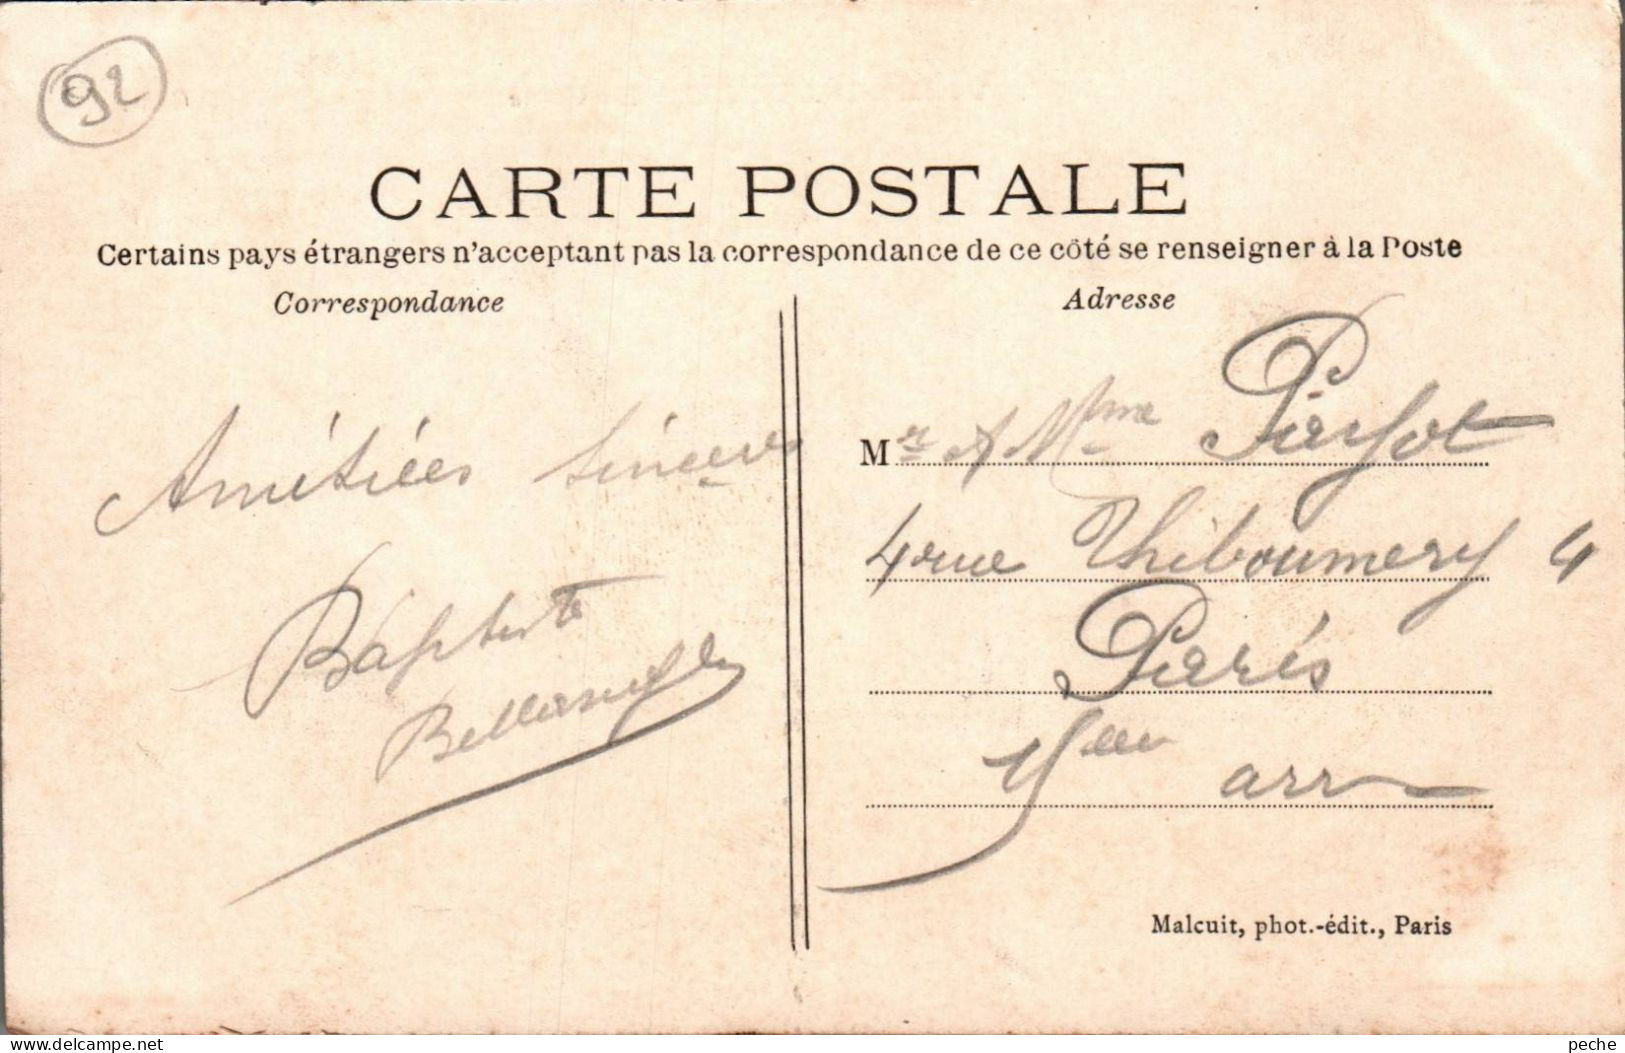 92
CARTE POSTALE
Certains pays étrangers n'acceptant pas la correspondance de ce côté se renseigner à la Poste
Correspondance
Amitiées sincères
Baptiste
Adresse
Mr & Mme
4 rue Thiboumery 4
Paris
15eme arr
Malcuit, phot.-édit., Paris
peche
www.delcampe.net